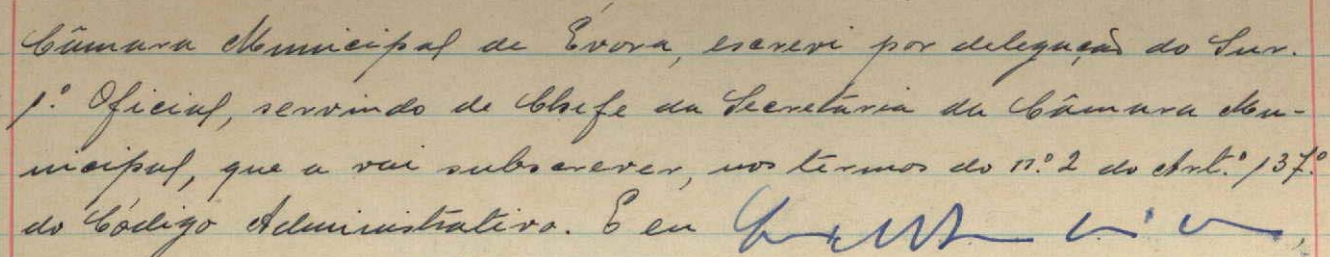 Câmara Municipal de Évora, escrevi por delegação do Snr.
1.º Oficial, servindo de Chefe da Secretaria da Câmara Mu-
nicipal, que a vai subscrever, nos termos do n.º 2 do Art.º 137.º
do Código Administrativo. E eu